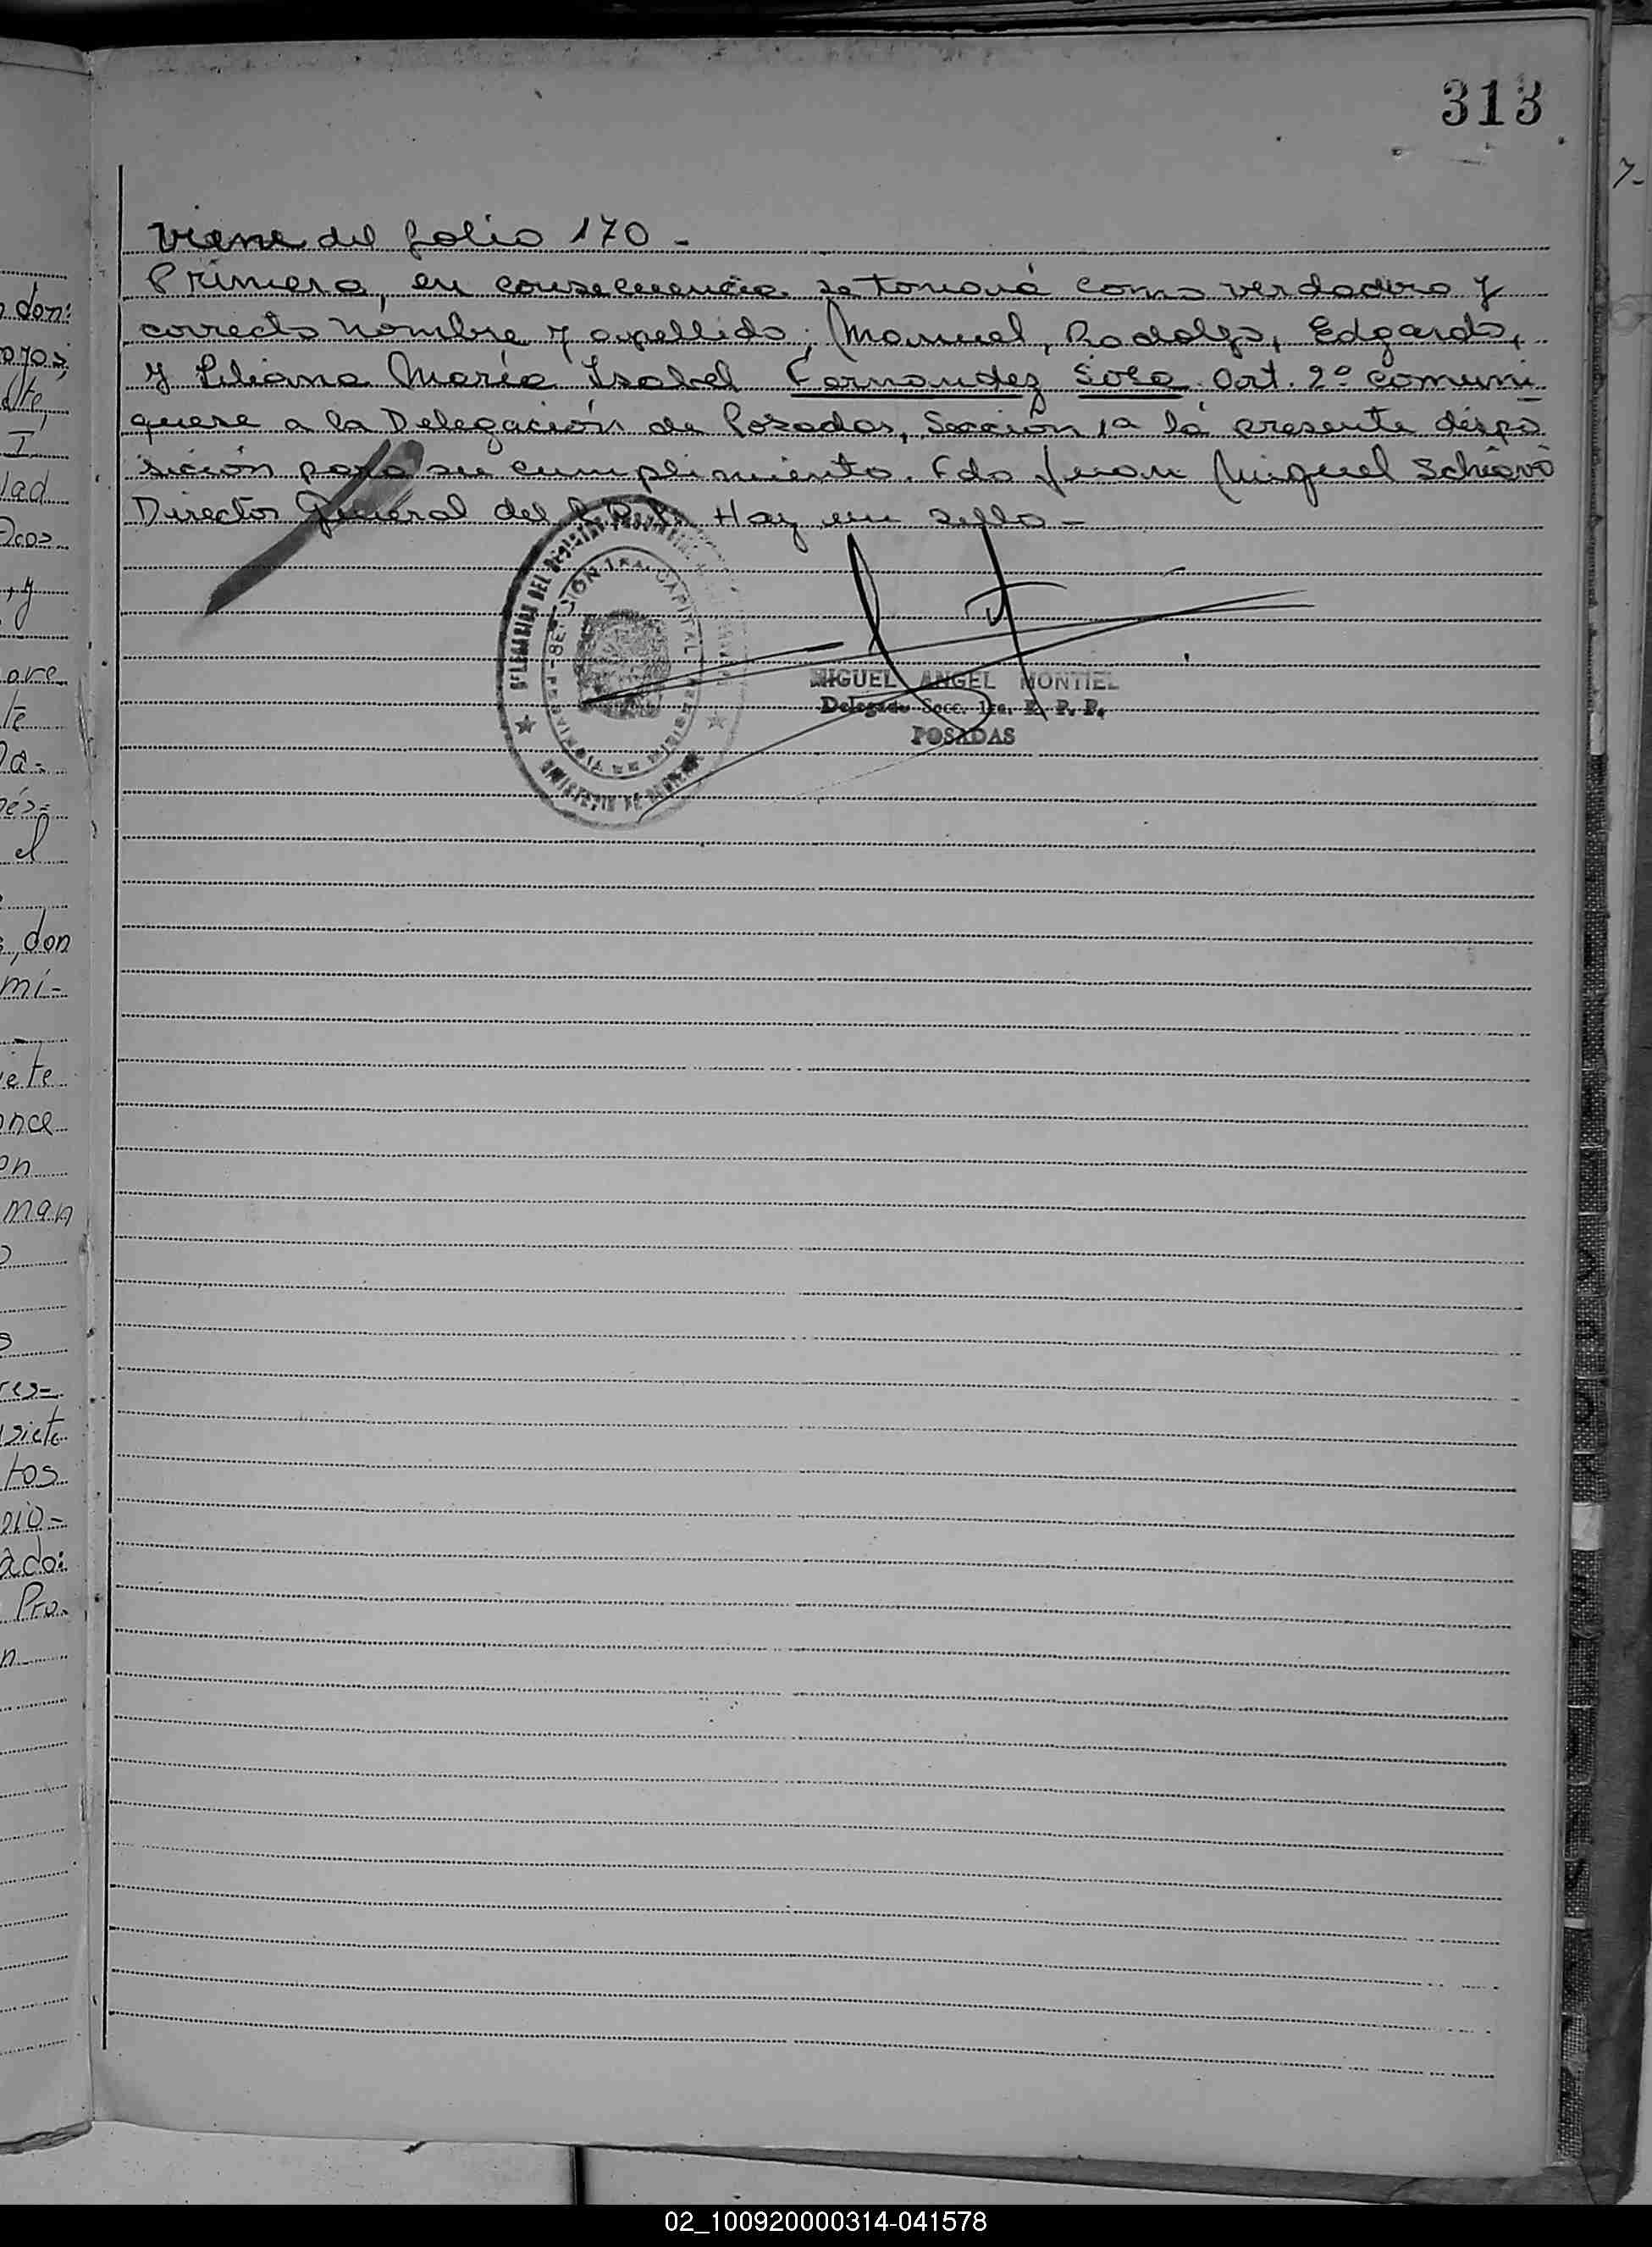 313
Viene del folio 170 -
Primera, en consecuencia se tomará como verdadero y
correcto nombre y apellido; Manuel, Rodolfo, Edgardo,
y Liliana María Isabel Fernandez Sosa. Art. 2º comuni
quese a la Delegación de Posadas, Sección 1ª la presente dispo
sición para su cumplimiento. Fdo Juan Miguel Schiavo
Director General del R.P.P. Hay un sello -
DELEGACION DEL REGISTRO
SECCION 1RA. CAPITAL
MISIONES
MIGUEL ANGEL MONTIEL
Delegado Secc. 1ra. R. P. P.
POSADAS
don:
I
dad
y
el
don
mi-
iete
once
on
man
res=
siete
tos
ado:
Pro-
n
7-
02_100920000314-041578